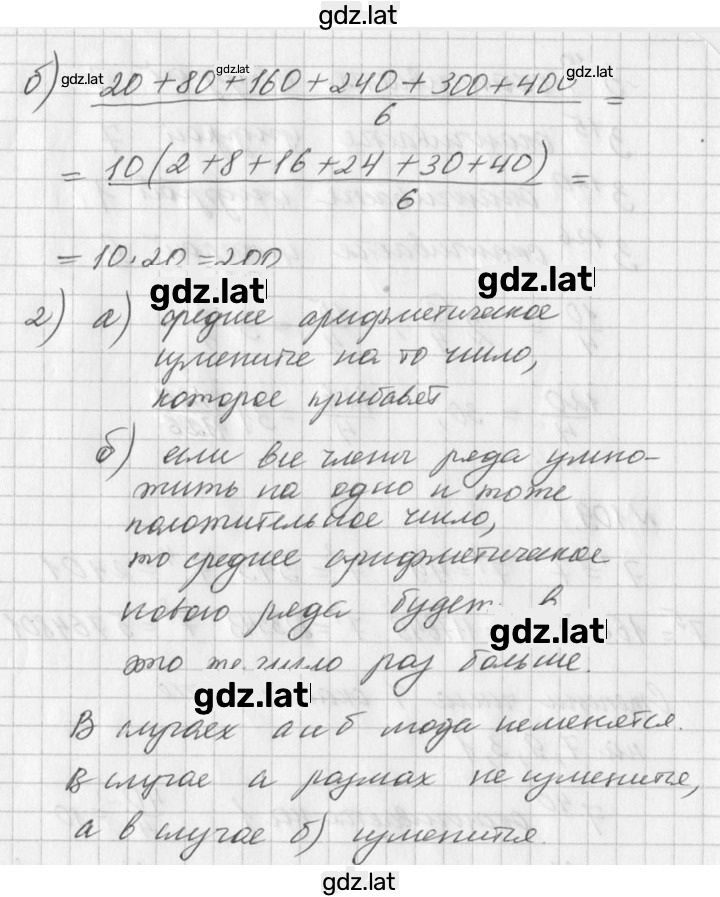 gdz.lat
б) gdz.lat 20 + 80 gdz.lat + 160 + 240 + 300 + 400 / 6 =
= 10(2 + 8 + 16 + 24 + 30 + 40) / 6 =
= 10 · 20 = 200
gdz.lat gdz.lat
2) а) среднее арифметическое
изменится на то число,
которое прибавят
б) если все члены ряда умно-
жить на одно и тоже
положительное число,
то среднее арифметическое
нового ряда будет в
gdz.lat
это же число раз больше.
gdz.lat
В случаех а и б мода неменятся.
В случае а размах не изменится,
а в случае б) изменится.
gdz.lat